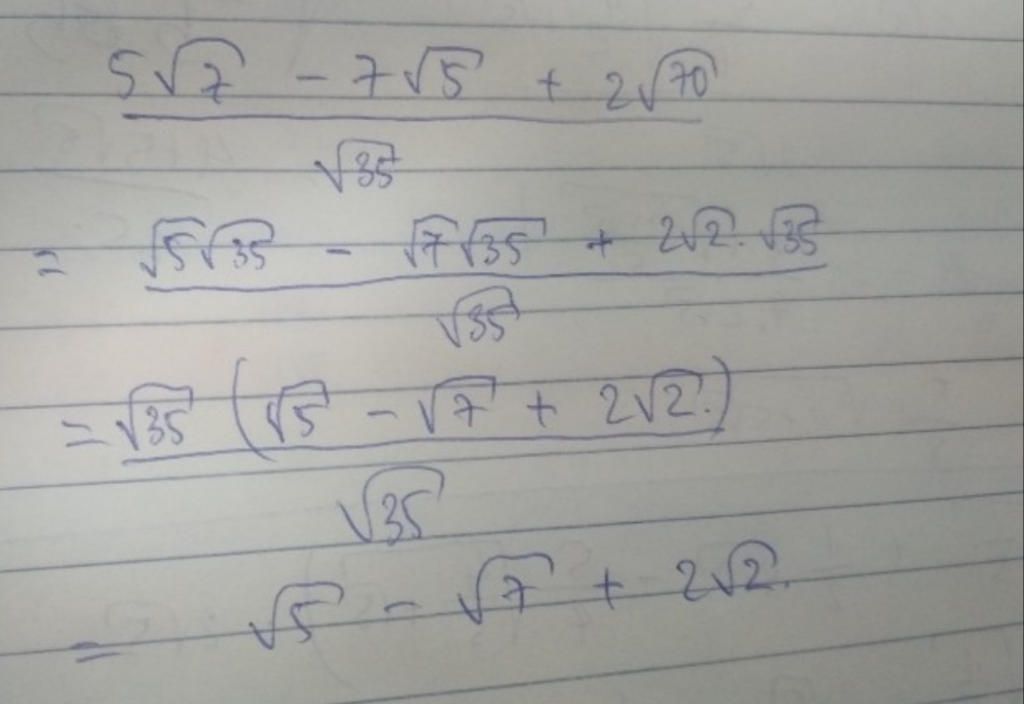 5√7 - 7√5 + 2√70
√35
= √5√35 - √7√35 + 2√2.√35
√35
= √35 (√5 - √7 + 2√2.)
√35
= √5 - √7 + 2√2.